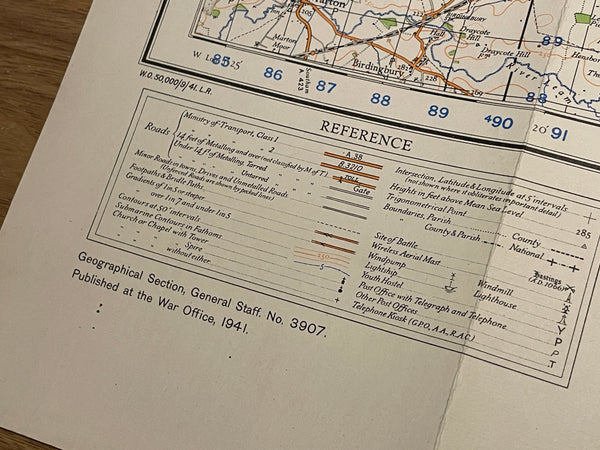 Marton
Moor
Birdingbury
Draycote
Hill
Draycote Hill
River Leam
85
25'
86
87
88
89
490
20'
91
89
88
W.O. 50,000/9/41. L.R.
A 423
REFERENCE
Roads
Ministry of Transport, Class 1
A 38
" " 2
B 3210
14 feet of Metalling and over (not classified by M of T.)
TOLL
Under 14 fᵗ of Metalling, Tarred
Gate
" " Untarred
Minor Roads in towns, Drives and Unmetalled Roads
(Unfenced Roads are shown by pecked lines)
Footpaths & Bridle Paths
Gradients of 1 in 5 or steeper
" over 1 in 7 and under 1 in 5
Contours at 50' intervals
150
Submarine Contours in Fathoms
5
Church or Chapel with Tower
" " Spire
" " without either
Intersection, Latitude & Longitude at 5' intervals
(not shown where it obliterates important detail)
Heights in feet above Mean Sea Level
285
Trigonometrical Point
Boundaries, Parish
County
County & Parish
National
Site of Battle
Hastings
(A.D. 1066)
Wireless Aerial Mast
Windpump
Windmill
Lightship
Lighthouse
Youth Hostel
Y
Post Office with Telegraph and Telephone
P
Other Post Offices
P
Telephone Kiosk (G.P.O., A.A., R.A.C.)
T
Geographical Section, General Staff. No. 3907.
Published at the War Office, 1941.